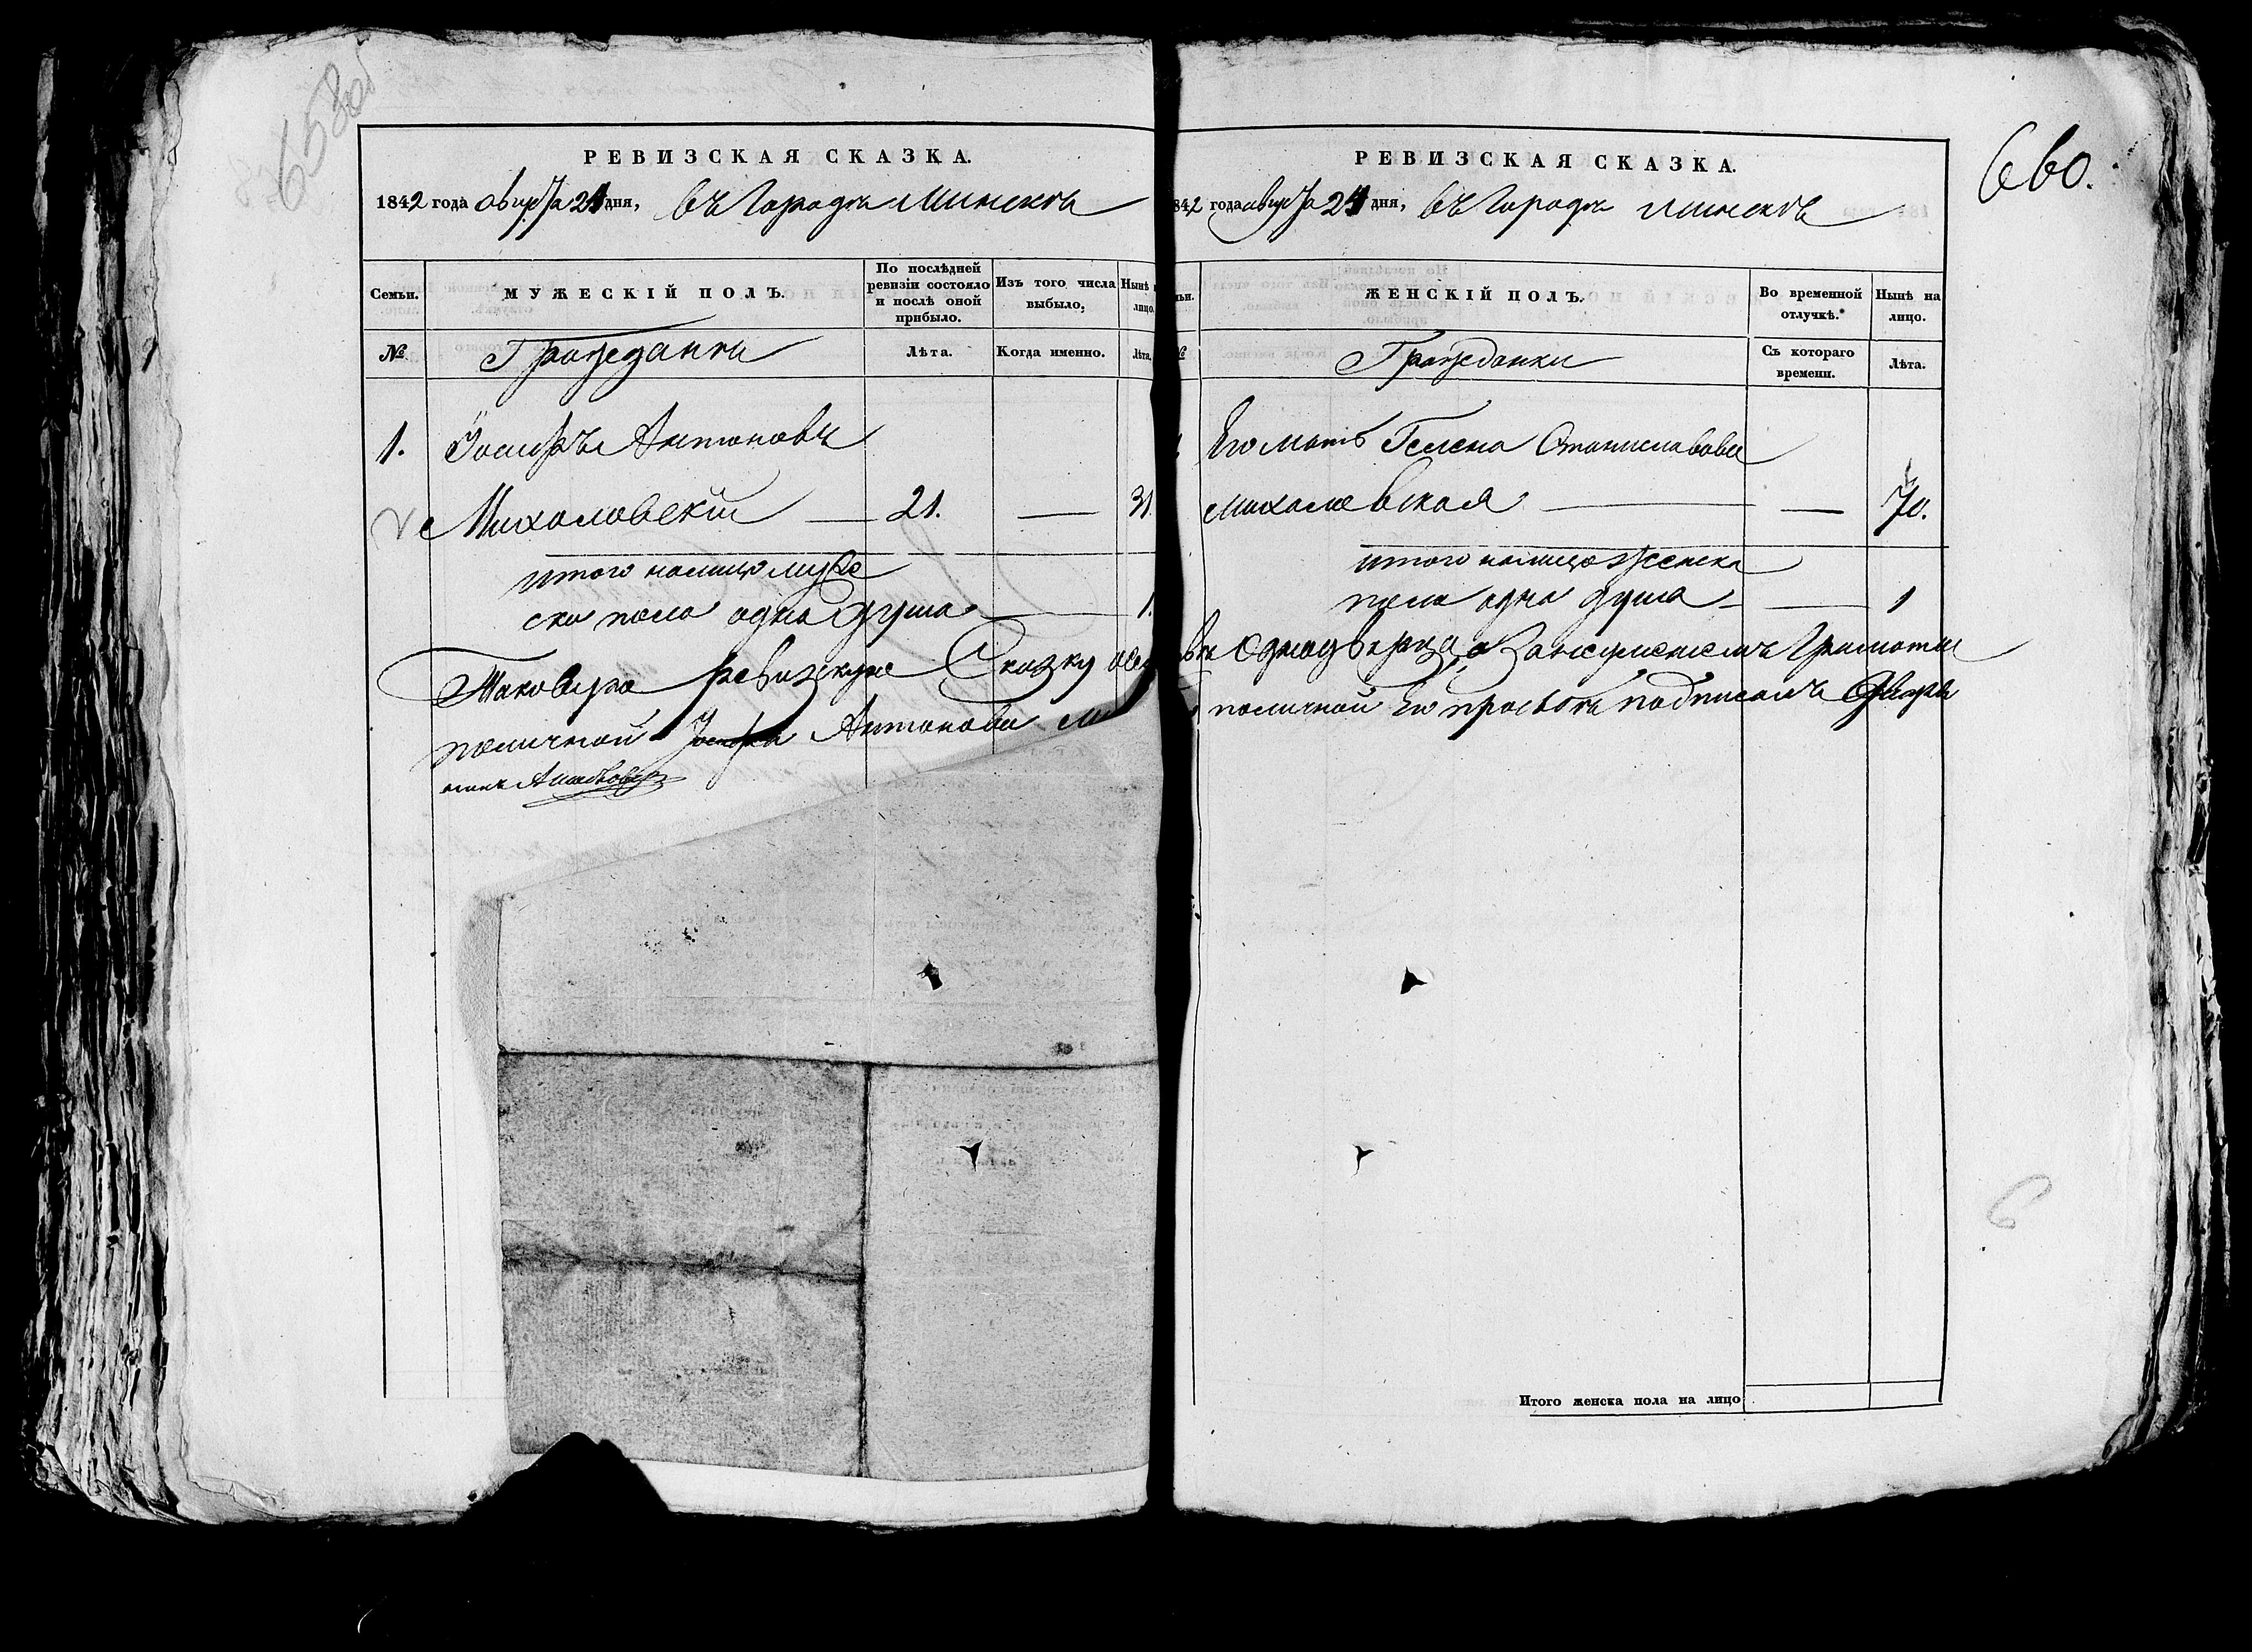 658об
РЕВИЗСКАЯ СКАЗКА.
1842 года августа 21 дня, въ городѣ Минскѣ
Семьи.
МУЖЕСКІЙ ПОЛЪ.
По послѣдней ревизіи состояло и послѣ оной прибыло.
Изъ того числа выбыло,
Нынѣ
лицо.
№
Граждане
Лѣта.
Когда именно.
Лѣта.
1. Іосифъ Антоновъ
Михаловскій — 21. — 31.
итого налицо муже
ска пола одна душа — 1.
Таковую ревизскую Сказку
поличной Іосифа Антонова
660.
РЕВИЗСКАЯ СКАЗКА.
842 года августа 21 дня, въ городѣ Минскѣ
ЖЕНСКІЙ ПОЛЪ.
Во временной отлучкѣ.*
Нынѣ на лицо.
№
Гражданки
Съ котораго времени.
Лѣта.
Его мать Гелена Станиславова
Михаловская — — 70.
итого налицо женска
пола одна душа — — 1
однодворца, а за неумениемъ грамоты
поличной его прозьбѣ подписалъ Дворя
Итого женска пола на лицо